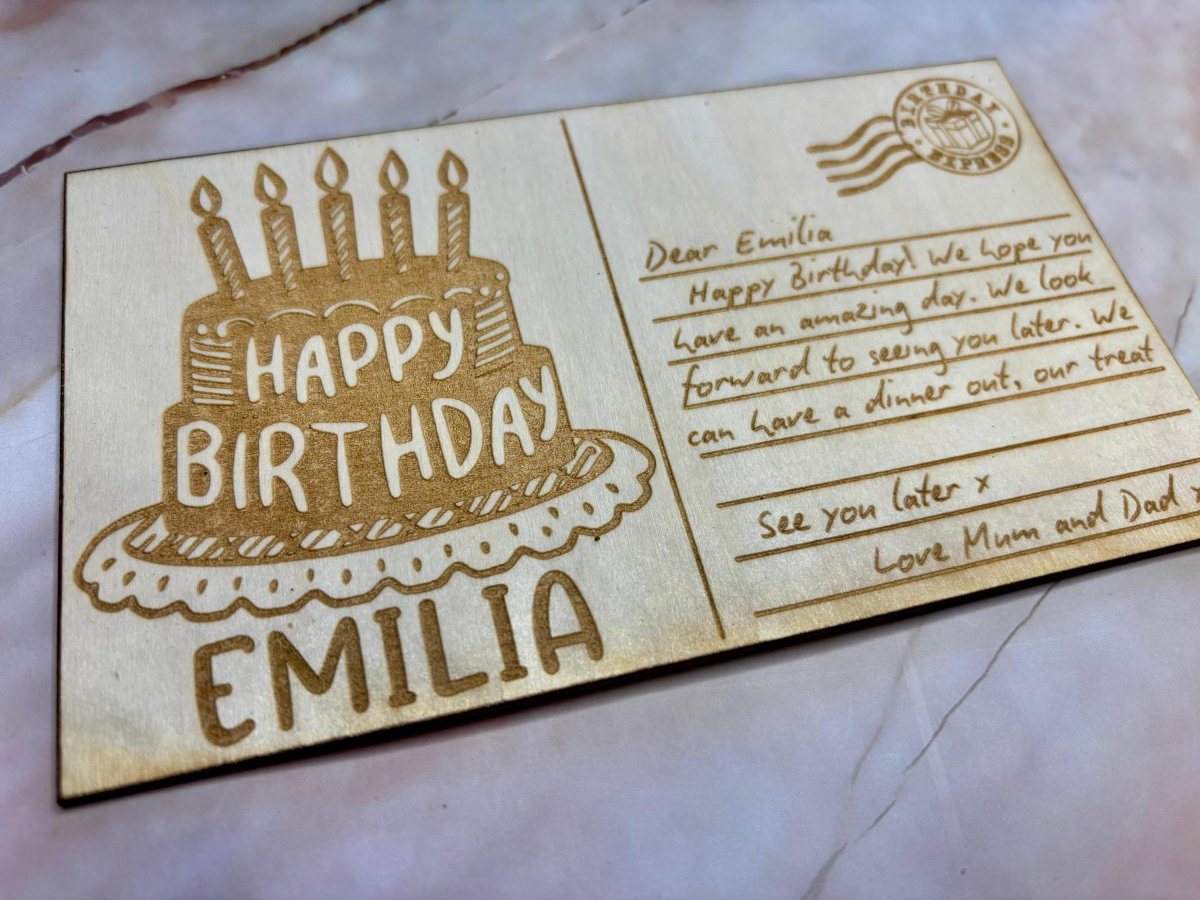 HAPPY
BIRTHDAY
EMILIA
BIRTHDAY
EXPRESS
Dear Emilia
Happy Birthday! We hope you
have an amazing day. We look
forward to seeing you later. We
can have a dinner out, our treat
See you later x
Love Mum and Dad x